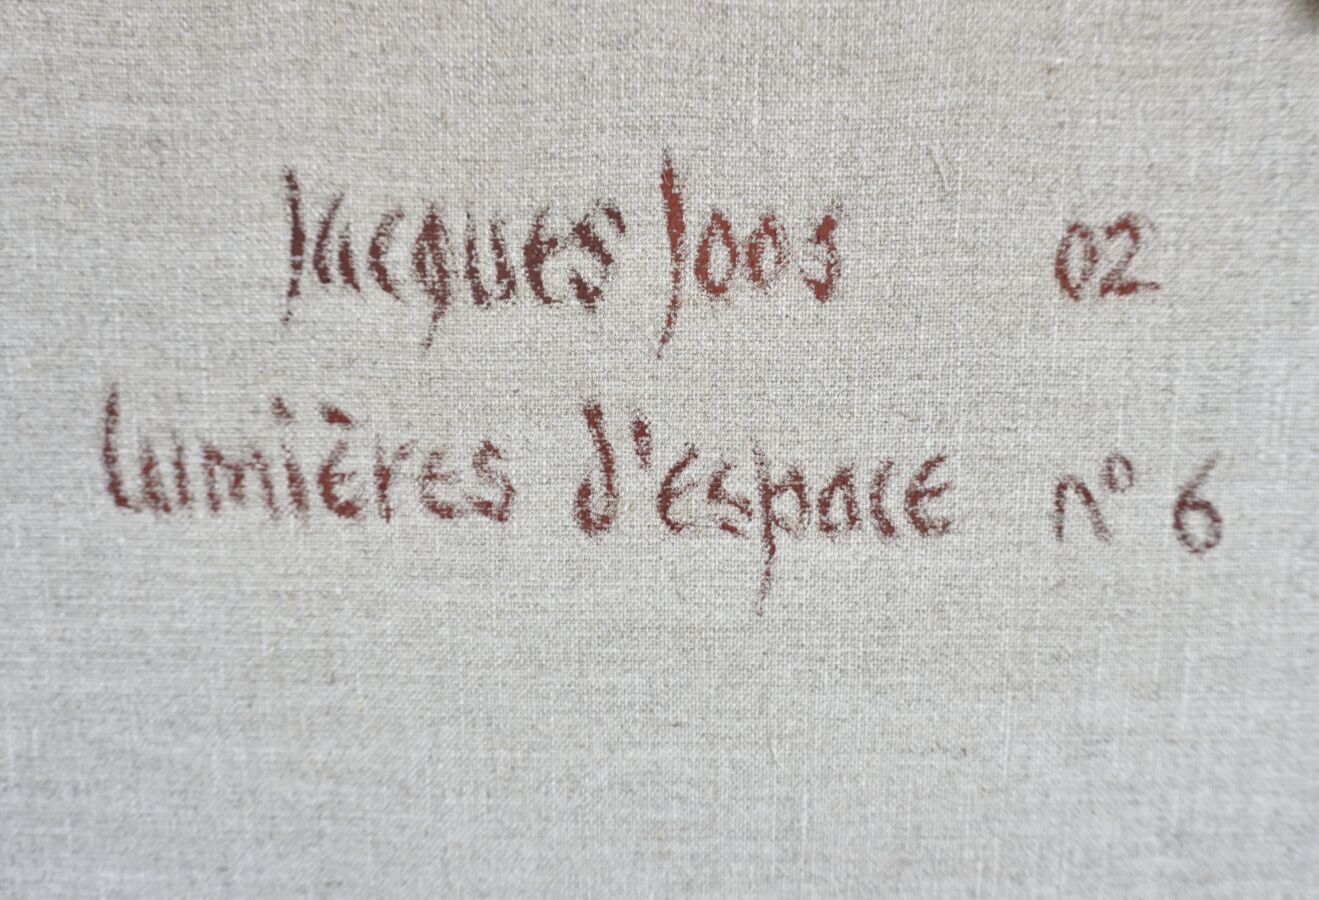 Jacques Joos 02
Lumières d'espace n° 6